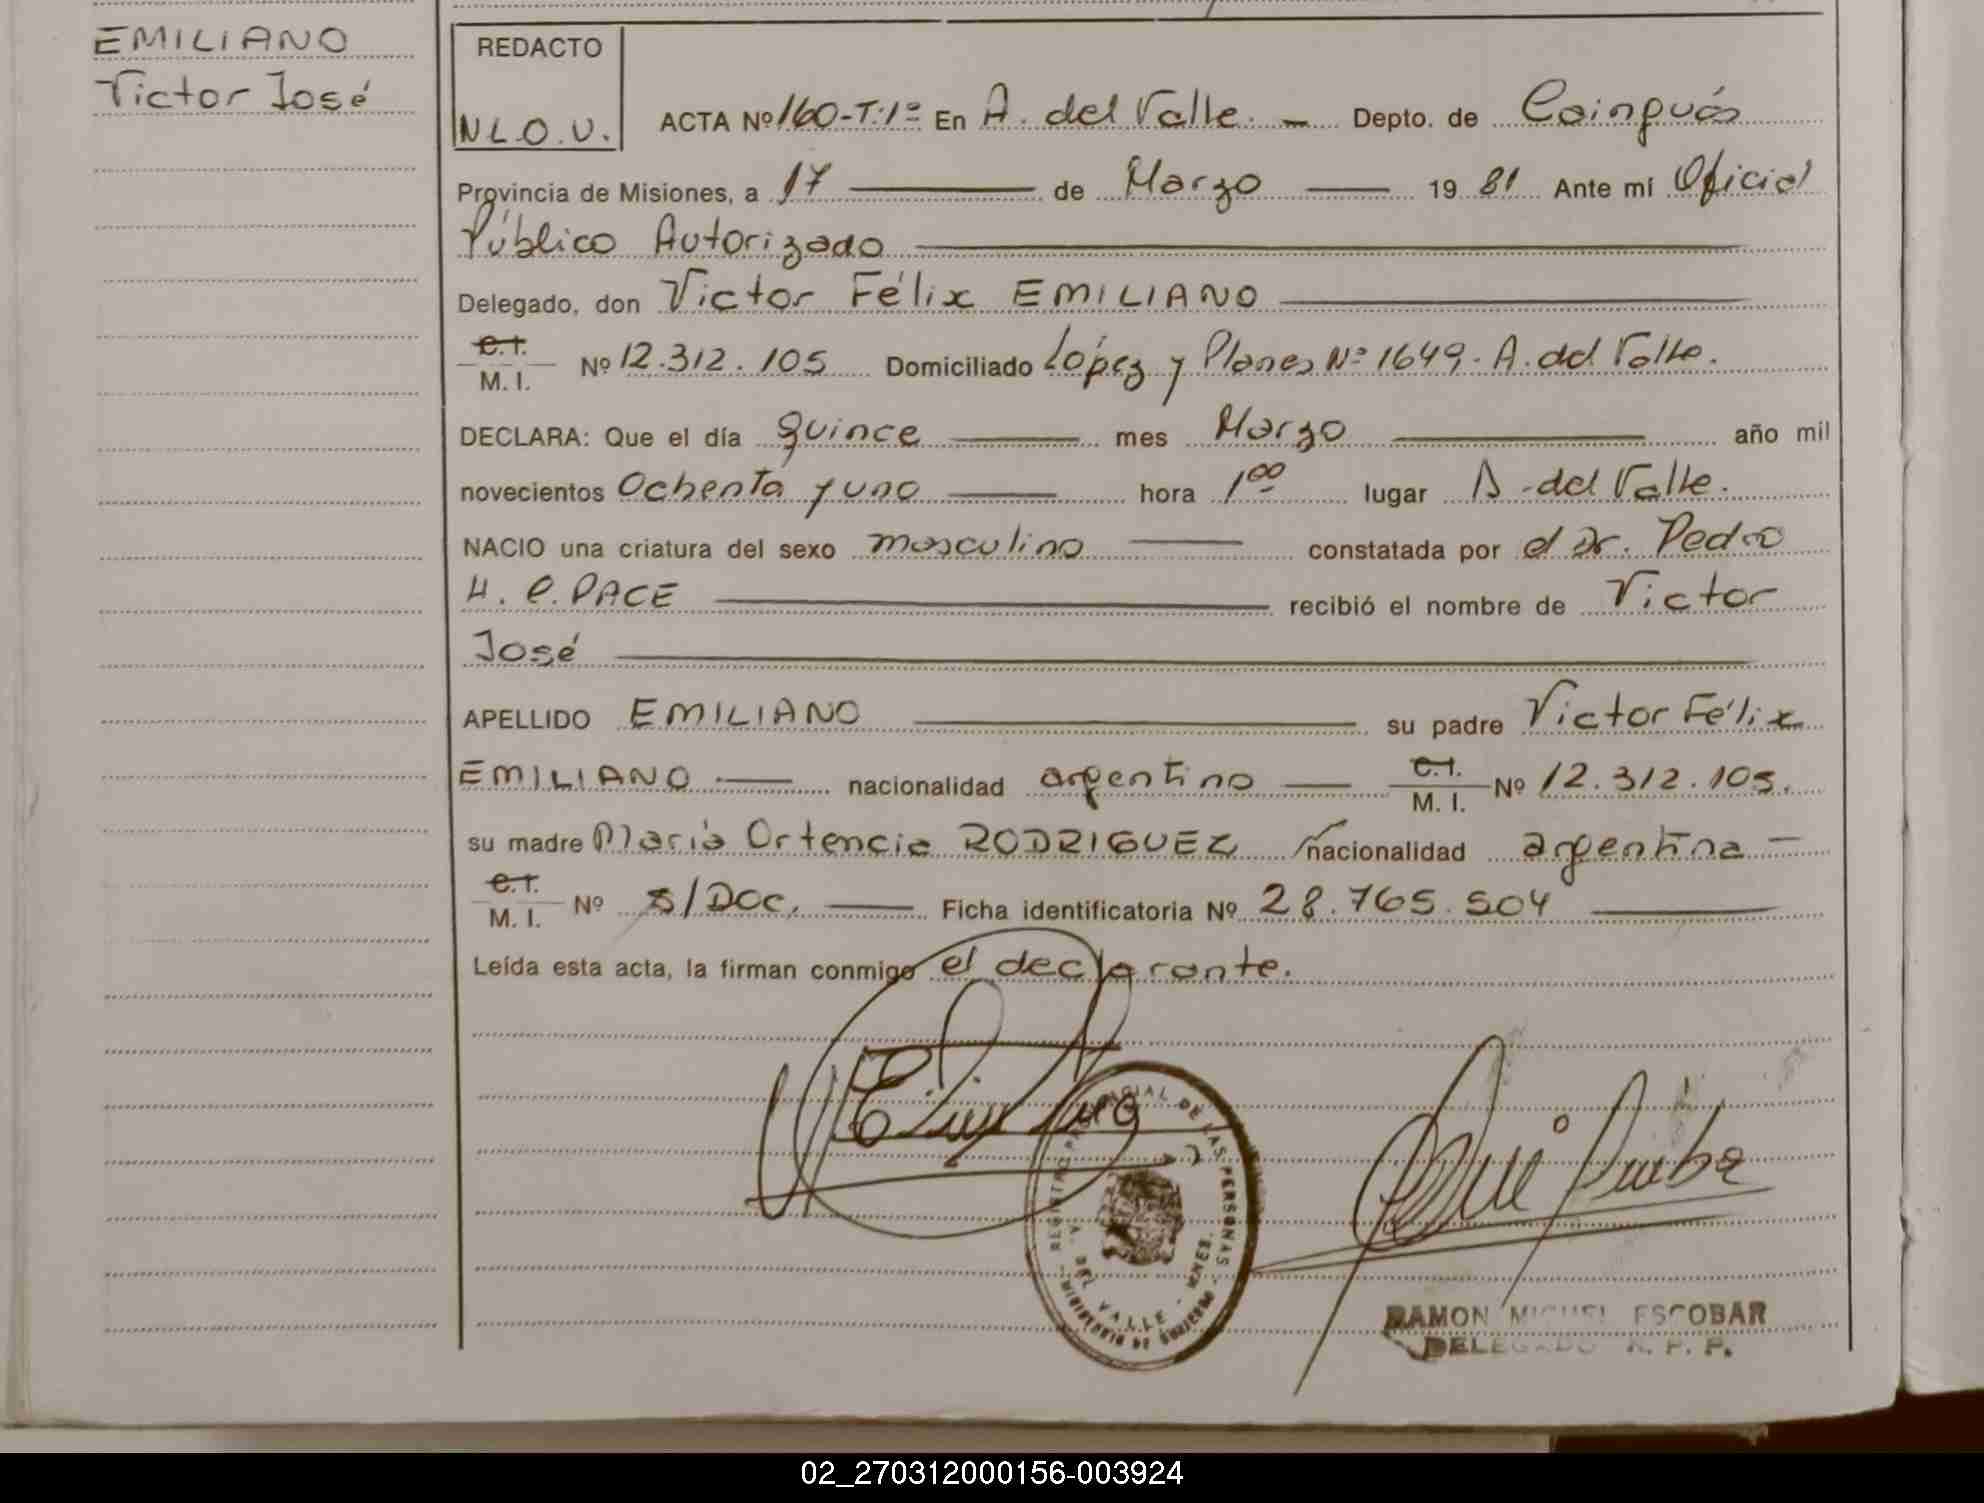 EMILIANO
Victor José
REDACTO
N.L.O.V.
ACTA Nº 160-T:1º En A. del Valle. — Depto. de Cainguás
Provincia de Misiones, a 17 — de Marzo — 19 81 Ante mí Oficial
Público Autorizado
Delegado, don Victor Félix EMILIANO
C.I.
M. I. Nº 12.312.105 Domiciliado López y Planes Nº 1649. A. del Valle.
DECLARA: Que el día quince — mes Marzo — año mil
novecientos Ochenta y uno — hora 1⁰⁰ lugar A. del Valle.
NACIO una criatura del sexo masculino — constatada por el Dr. Pedro
H. C. PACE — recibió el nombre de Victor
José
APELLIDO EMILIANO — su padre Victor Félix
EMILIANO — nacionalidad argentino — C.I.
M. I. Nº 12.312.105.
su madre María Ortencia RODRIGUEZ nacionalidad argentina —
C.I.
M. I. Nº S/Doc. — Ficha identificatoria Nº 28.765.504
Leída esta acta, la firman conmigo el declarante.
REGISTRO PROVINCIAL DE LAS PERSONAS
A. DEL VALLE - MNES.
MINISTERIO DE GOBIERNO
RAMON MIGUEL ESCOBAR
DELEGADO R. P. P.
02_270312000156-003924